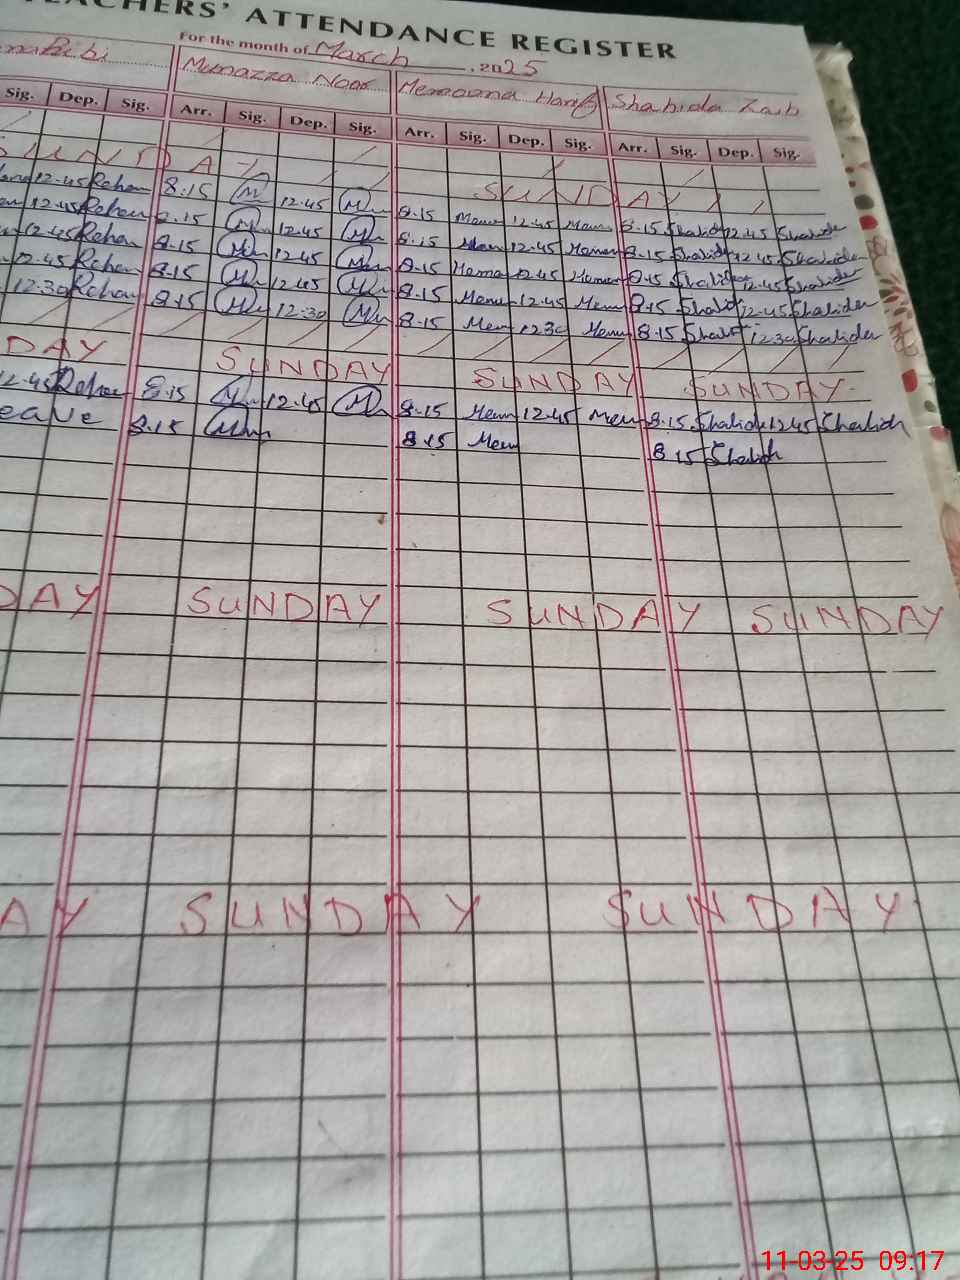 TEACHERS' ATTENDANCE REGISTER
For the month of March, 2025
Bibi Munazza Noor Memoona Hanif Shahida Zaib
Sig. Dep. Sig. Arr. Sig. Dep. Sig. Arr. Sig. Dep. Sig. Arr. Sig. Dep. Sig.
SUNDAY SUNDAY
12.45 Rehan 8.15 12.45 8.15 Mem 12.45 Mem 8.15 Shahid 12.45 Shahida
12.45 Rehan 8.15 12.45 8.15 Mem 12.45 Memon 8.15 Shahid 12.45 Shahida
12.45 Rehan 8.15 12.45 8.15 Memo 12.45 Memon 8.15 Shahid 12.45 Shahida
12.45 Rehan 8.15 12.45 8.15 Mem 12.45 Mem 8.15 Shahid 12.45 Shahida
12.30 Rehan 8.15 12.30 8.15 Mem 12.30 Mem 8.15 Shahid 12.30 Shahida
DAY SUNDAY SUNDAY SUNDAY
12.45 Rehan 8.15 12.45 8.15 Mem 12.45 Mem 8.15 Shahid 12.45 Shahida
eave 8.15 8.15 Mem 8.15 Shahid
DAY SUNDAY SUNDAY SUNDAY
AY SUNDAY SUNDAY
11-03-25 09:17